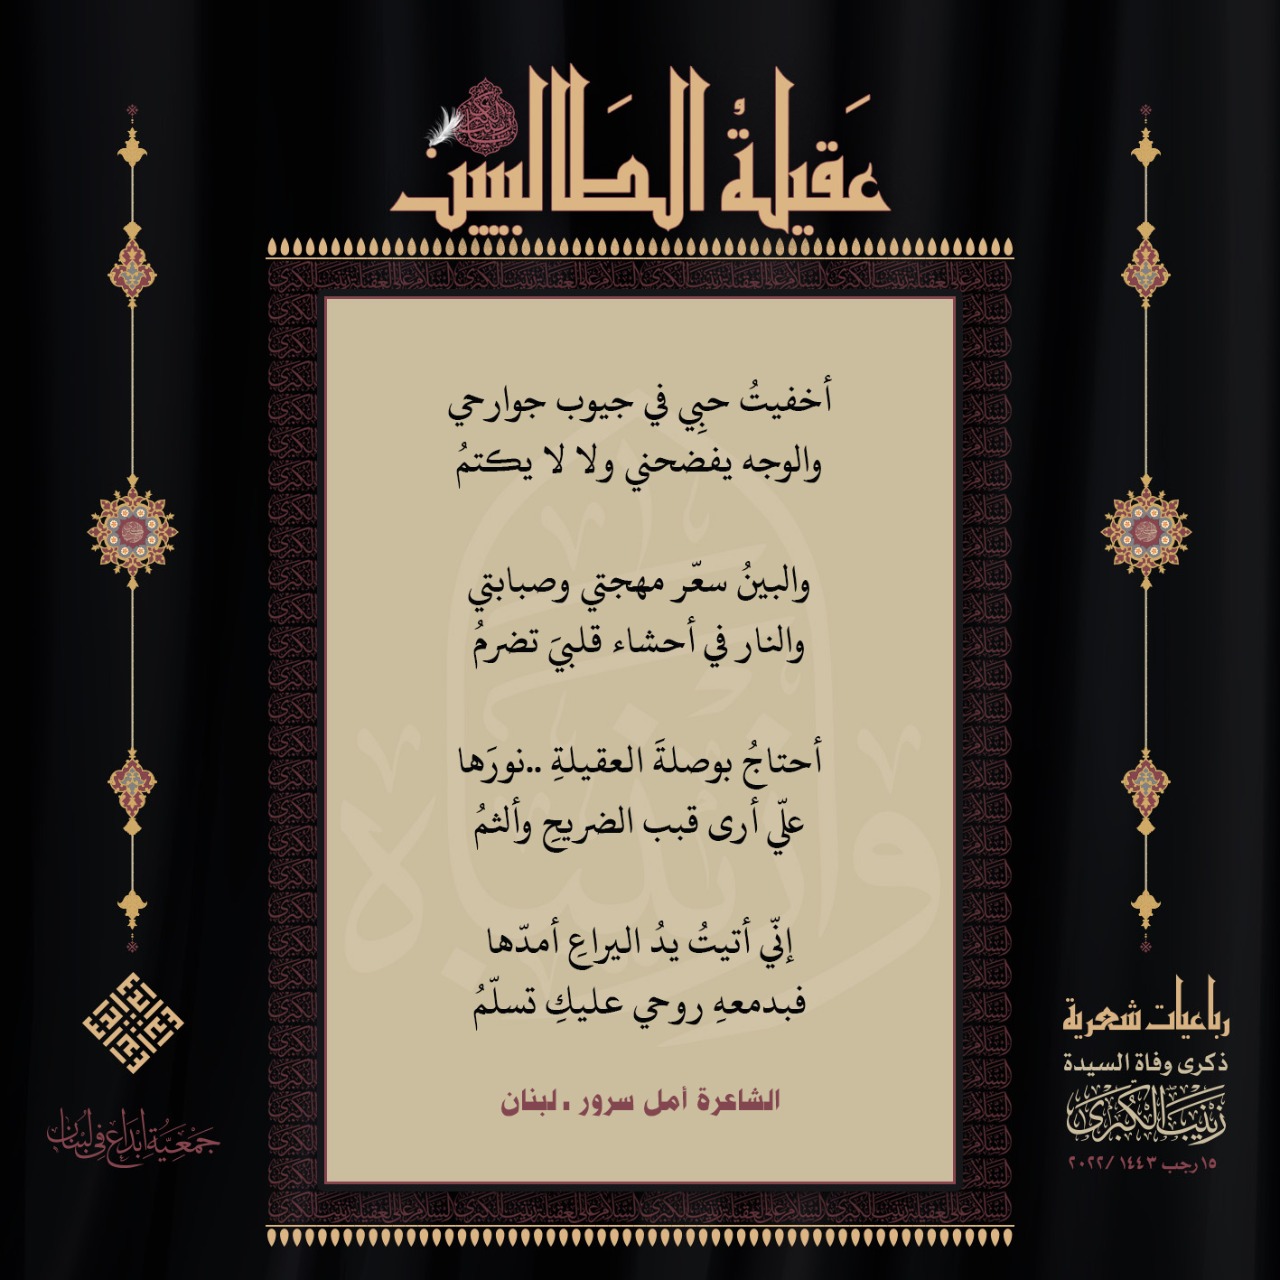 عَقيلةُ الطَالبيين
أخفيتُ حبِي في جيوب جوارحي
والوجه يفضحني ولا لا يكتمُ
والبينُ سعّر مهجتي وصبابتي
والنار في أحشاء قلبيَ تضرمُ
أحتاجُ بوصلةَ العقيلةِ ..نورَها
علّي أرى قبب الضريحِ وألثمُ
إنّي أتيتُ يدُ اليراعِ أمدّها
فبدمعهِ روحي عليكِ تسلّمُ
الشاعرة أمل سرور . لبنان
رباعيات شعرية
ذكرى وفاة السيدة
زَيْنَبَ الْكُبْرَى
١٥ رجب ١٤٤٣ /٢٠٢٢
جَمْعِيَّةُ إبْدَاع فِي لُبْنَان
وا زينباه